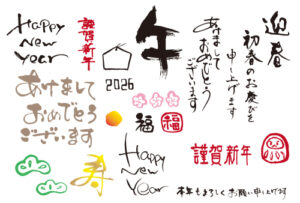 Happy
New
Year
謹賀新年
2026
午
あけまして
おめでとう
ございます
迎春
初春のお慶びを
申し上げます
あけまして
おめでとう
ございます
福
福
寿
Happy
New
Year
謹賀新年
本年もよろしくお願い申し上げます